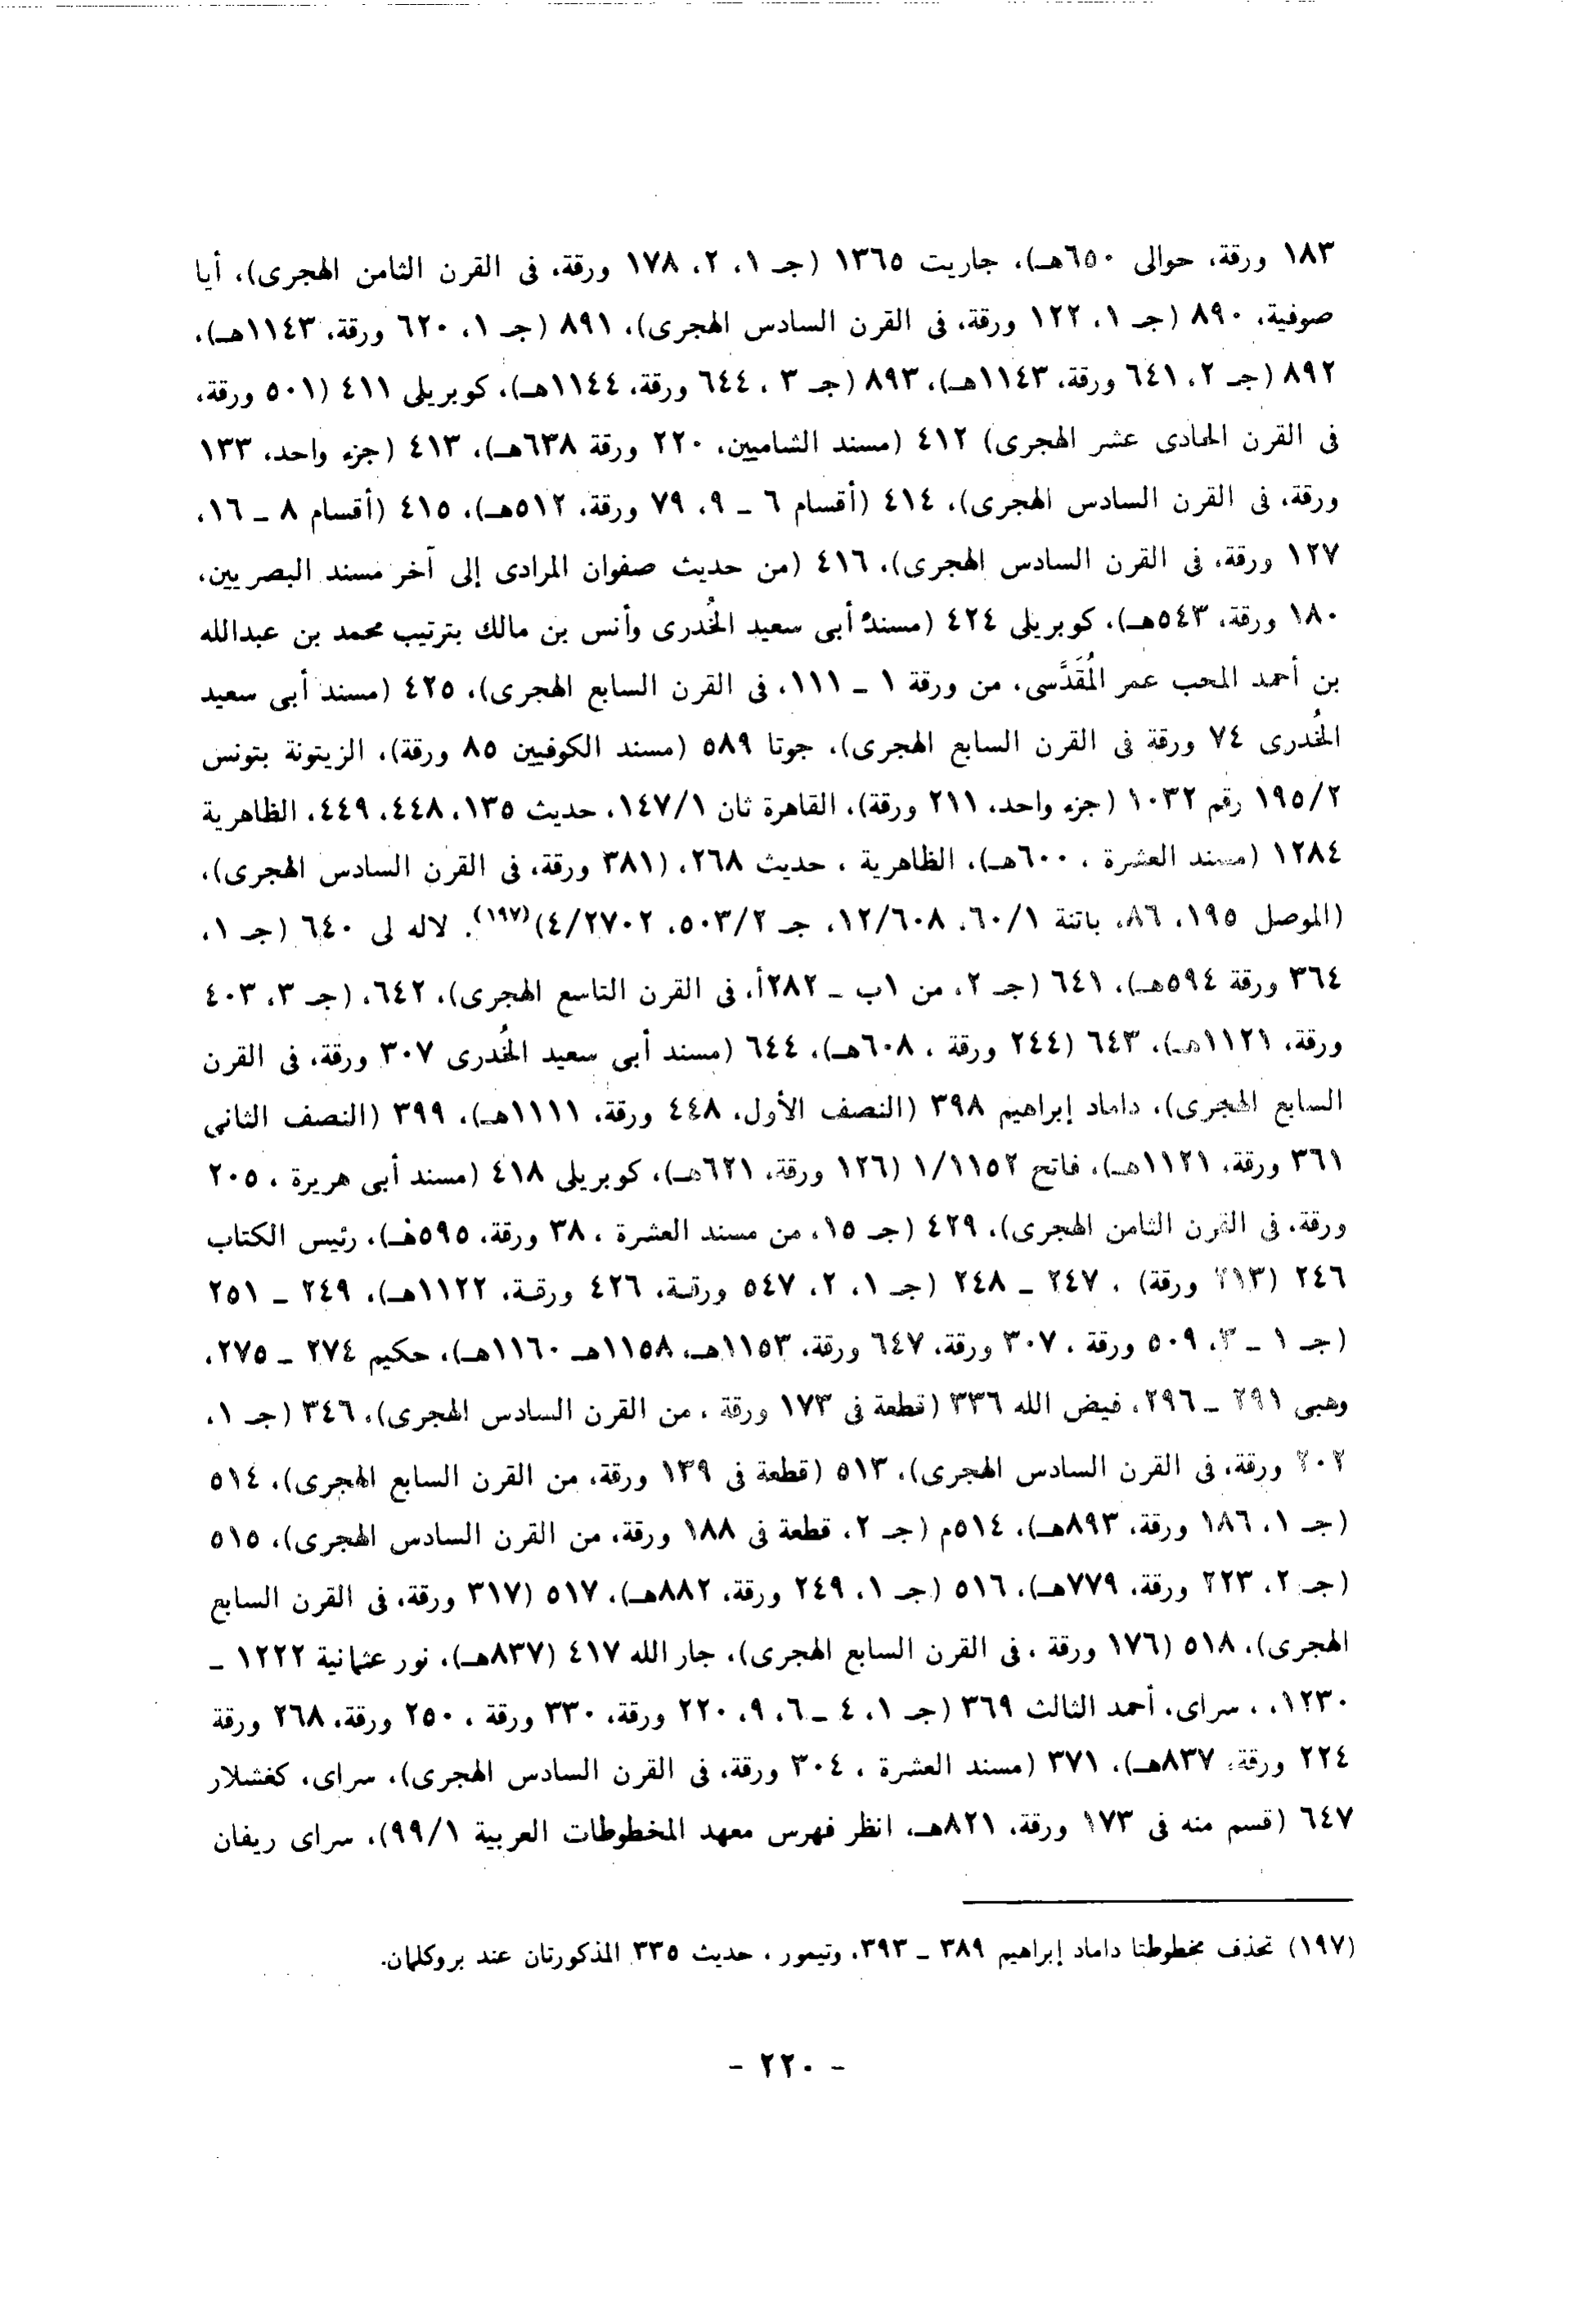 ١٨٣ ورقة، حوالى ٦٥٠هـ)، جاريت ١٣٦٥ (جـ ١، ٢، ١٧٨ ورقة، فى القرن الثامن الهجرى)، أيا
صوفية، ٨٩٠ (جـ ١، ١٢٢ ورقة، فى القرن السادس الهجرى)، ٨٩١ (جـ ١، ٦٢٠ ورقة، ١١٤٣هـ)،
٨٩٢ (جـ ٢، ٦٤١ ورقة، ١١٤٣هـ)، ٨٩٣ (جـ ٣ ، ٦٤٤ ورقة، ١١٤٤هـ)، كوبريلى ٤١١ (٥٠١ ورقة،
فى القرن الحادى عشر الهجرى) ٤١٢ (مسند الشاميين، ٢٢٠ ورقة ٦٣٨هـ)، ٤١٣ (جزء واحد، ١٣٣
ورقة، فى القرن السادس الهجرى)، ٤١٤ (أقسام ٦ ـ ٩، ٧٩ ورقة، ٥١٢هـ)، ٤١٥ (أقسام ٨ ـ ١٦،
١٢٧ ورقة، فى القرن السادس الهجرى)، ٤١٦ (من حديث صفوان المرادى إلى آخر مسند البصريين،
١٨٠ ورقة، ٥٤٣هـ)، كوبريلى ٤٢٤ (مسند أبى سعيد الخُدرى وأنس بن مالك بترتيب محمد بن عبدالله
بن أحمد المحب عمر المُقَدَّسى، من ورقة ١ ـ ١١١، فى القرن السابع الهجرى)، ٤٢٥ (مسند أبى سعيد
الخُدرى ٧٤ ورقة فى القرن السابع الهجرى)، جوتا ٥٨٩ (مسند الكوفيين ٨٥ ورقة)، الزيتونة بتونس
١٩٥/٢ رقم ١٠٣٢ (جزء واحد، ٢١١ ورقة)، القاهرة ثان ١٤٧/١، حديث ١٣٥، ٤٤٨، ٤٤٩، الظاهرية
١٢٨٤ (مسند العشرة ، ٦٠٠هـ)، الظاهرية ، حديث ٢٦٨، (٣٨١ ورقة، فى القرن السادس الهجرى)،
(الموصل ١٩٥، ٨٦، باتنة ٦٠/١، ١٢/٦٠٨، جـ ٥٠٣/٢، ٤/٢٧٠٢)(١٩٧). لاله لى ٦٤٠ (جـ ١،
٣٦٤ ورقة ٥٩٤هـ)، ٦٤١ (جـ ٢، من ١ب ـ ٢٨٢أ، فى القرن التاسع الهجرى)، ٦٤٢، (جـ ٣، ٤٠٣
ورقة، ١١٢١هـ)، ٦٤٣ (٢٤٤ ورقة ، ٦٠٨هـ)، ٦٤٤ (مسند أبى سعيد الخُدرى ٣٠٧ ورقة، فى القرن
السابع الهجرى)، داماد إبراهيم ٣٩٨ (النصف الأول، ٤٤٨ ورقة، ١١١١هـ)، ٣٩٩ (النصف الثانى
٣٦١ ورقة، ١١٢١هـ)، فاتح ١/١١٥٢ (١٢٦ ورقة، ٦٢١هـ)، كوبريلى ٤١٨ (مسند أبى هريرة ، ٢٠٥
ورقة، فى القرن الثامن الهجرى)، ٤٢٩ (جـ ١٥، من مسند العشرة ، ٣٨ ورقة، ٥٩٥هـ)، رئيس الكتاب
٢٤٦ (٢١٣ ورقة) ، ٢٤٧ ـ ٢٤٨ (جـ ١، ٢، ٥٤٧ ورقة، ٤٢٦ ورقة، ١١٢٢هـ)، ٢٤٩ ـ ٢٥١
(جـ ١ ـ ٣، ٥٠٩ ورقة ، ٣٠٧ ورقة، ٦٤٧ ورقة، ١١٥٣هـ، ١١٥٨هـ ١١٦٠هـ)، حكيم ٢٧٤ ـ ٢٧٥،
وهبى ٢٩١ ـ ٢٩٦، فيض الله ٣٣٦ (قطعة فى ١٧٣ ورقة ، من القرن السادس الهجرى)، ٣٤٦ (جـ ١،
٢٠٢ ورقة، فى القرن السادس الهجرى)، ٥١٣ (قطعة فى ١٣٩ ورقة، من القرن السابع الهجرى)، ٥١٤
(جـ ١، ١٨٦ ورقة، ٨٩٣هـ)، ٥١٤م (جـ ٢، قطعة فى ١٨٨ ورقة، من القرن السادس الهجرى)، ٥١٥
(جـ ٢، ٢٢٣ ورقة، ٧٧٩هـ)، ٥١٦ (جـ ١، ٢٤٩ ورقة، ٨٨٢هـ)، ٥١٧ (٣١٧ ورقة، فى القرن السابع
الهجرى)، ٥١٨ (١٧٦ ورقة ، فى القرن السابع الهجرى)، جار الله ٤١٧ (٨٣٧هـ)، نور عثمانية ١٢٢٢ ـ
١٢٣٠، ، سراى، أحمد الثالث ٣٦٩ (جـ ١، ٤ ـ ٦، ٩، ٢٢٠ ورقة، ٣٣٠ ورقة ، ٢٥٠ ورقة، ٢٦٨ ورقة
٢٢٤ ورقة، ٨٣٧هـ)، ٣٧١ (مسند العشرة ، ٣٠٤ ورقة، فى القرن السادس الهجرى)، سراى، كغشلار
٦٤٧ (قسم منه فى ١٧٣ ورقة، ٨٢١هـ، انظر فهرس معهد المخطوطات العربية ٩٩/١)، سراى ريفان
(١٩٧) تحذف مخطوطتا داماد إبراهيم ٣٨٩ ـ ٣٩٣، وتيمور ، حديث ٣٣٥ المذكورتان عند بروكلمان.
- ٢٢٠ -